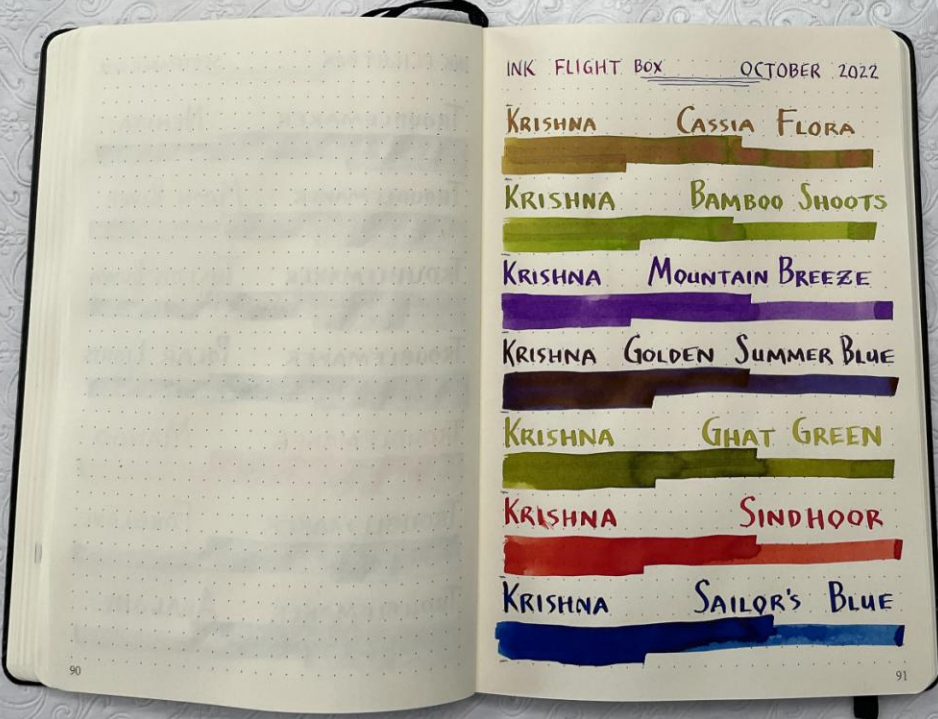 INK FLIGHT BOX OCTOBER 2022
KRISHNA CASSIA FLORA
KRISHNA BAMBOO SHOOTS
KRISHNA MOUNTAIN BREEZE
KRISHNA GOLDEN SUMMER BLUE
KRISHNA GHAT GREEN
KRISHNA SINDHOOR
KRISHNA SAILOR'S BLUE
90
91